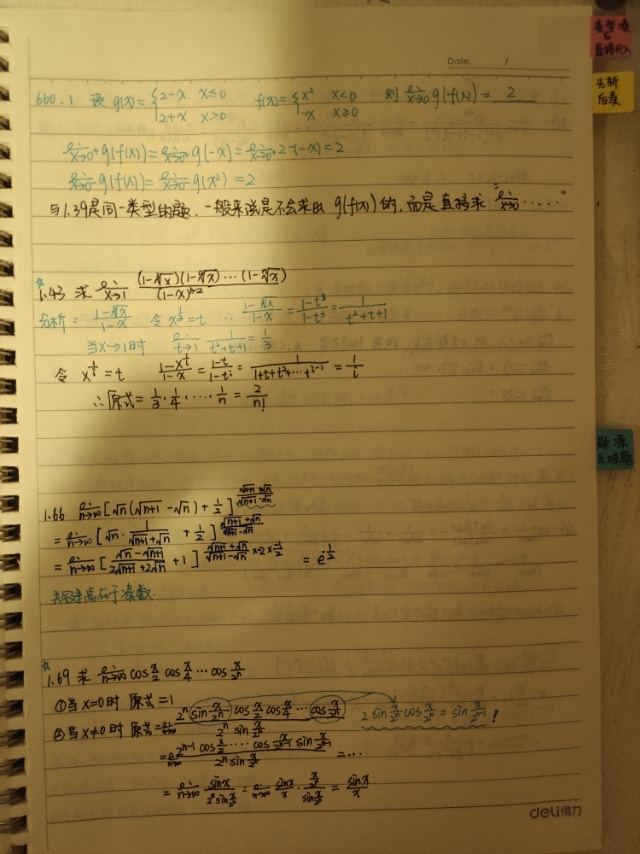 Date. /
660.1 设 g(x)={2-x x≤0 2+x x>0 f(x)={x² x<0 -x x≥0 则 lim x→0 g(f(x))= 2
lim x→0+ g(f(x))=lim x→0+ g(-x)=lim x→0+ 2-(-x)=2
lim x→0- g(f(x))=lim x→0- g(x²)=2
与1.39是同一类型的题,一般来说是不会求出 g(f(x))的,而是直接求"lim x→0 ....."
☆
1.43 求 lim x→1 (1-√x)(1-∛x)…(1-ⁿ√x)/(1-x)ⁿ⁻²
分析: (1-∛x)/(1-x) 令 x^(1/3)=t ∴ (1-∛x)/(1-x)=(1-t)/(1-t³)=1/(t²+t+1)
当x→1时 lim t→1 1/(t²+t+1)=1/3
令 x^(1/i)=t (1-x^(1/i))/(1-x)=(1-t)/(1-t^i)=1/(1+t+t²+…t^(i-1))=1/i
∴原式=1/3·1/4·…·1/n=2/n!
1.66 lim n→∞ [√n(√(n+1)-√n)+1/2]^((√(n+1)+√n)/(√(n+1)-√n))
=lim n→∞ [√n·1/(√(n+1)+√n)+1/2]^((√(n+1)+√n)/(√(n+1)-√n))
=lim n→∞ [(√n-√(n+1))/(2√(n+1)+2√n)+1]^((√(n+1)+√n)/(√(n+1)-√n)×-2×-1/2) =e^(-1/2)
☆
1.69 求 lim n→∞ cos x/2 cos x/4 … cos x/2ⁿ
①当 x=0时 原式=1
②当 x≠0时 原式=lim n→∞ (2ⁿ sin x/2ⁿ cos x/2 cos x/4 … cos x/2ⁿ)/(2ⁿ sin x/2ⁿ) 2 sin x/2ⁿ cos x/2ⁿ=sin x/2ⁿ⁻¹!
=lim n→∞ (2ⁿ⁻¹ cos x/2 … cos x/2ⁿ⁻¹ sin x/2ⁿ⁻¹)/(2ⁿ sin x/2ⁿ) =…
=lim n→∞ sin x/(2ⁿ sin x/2ⁿ)=lim n→∞ sin x/x·(x/2ⁿ)/(sin x/2ⁿ)=sin x/x
deli得力
类型准
直接代入